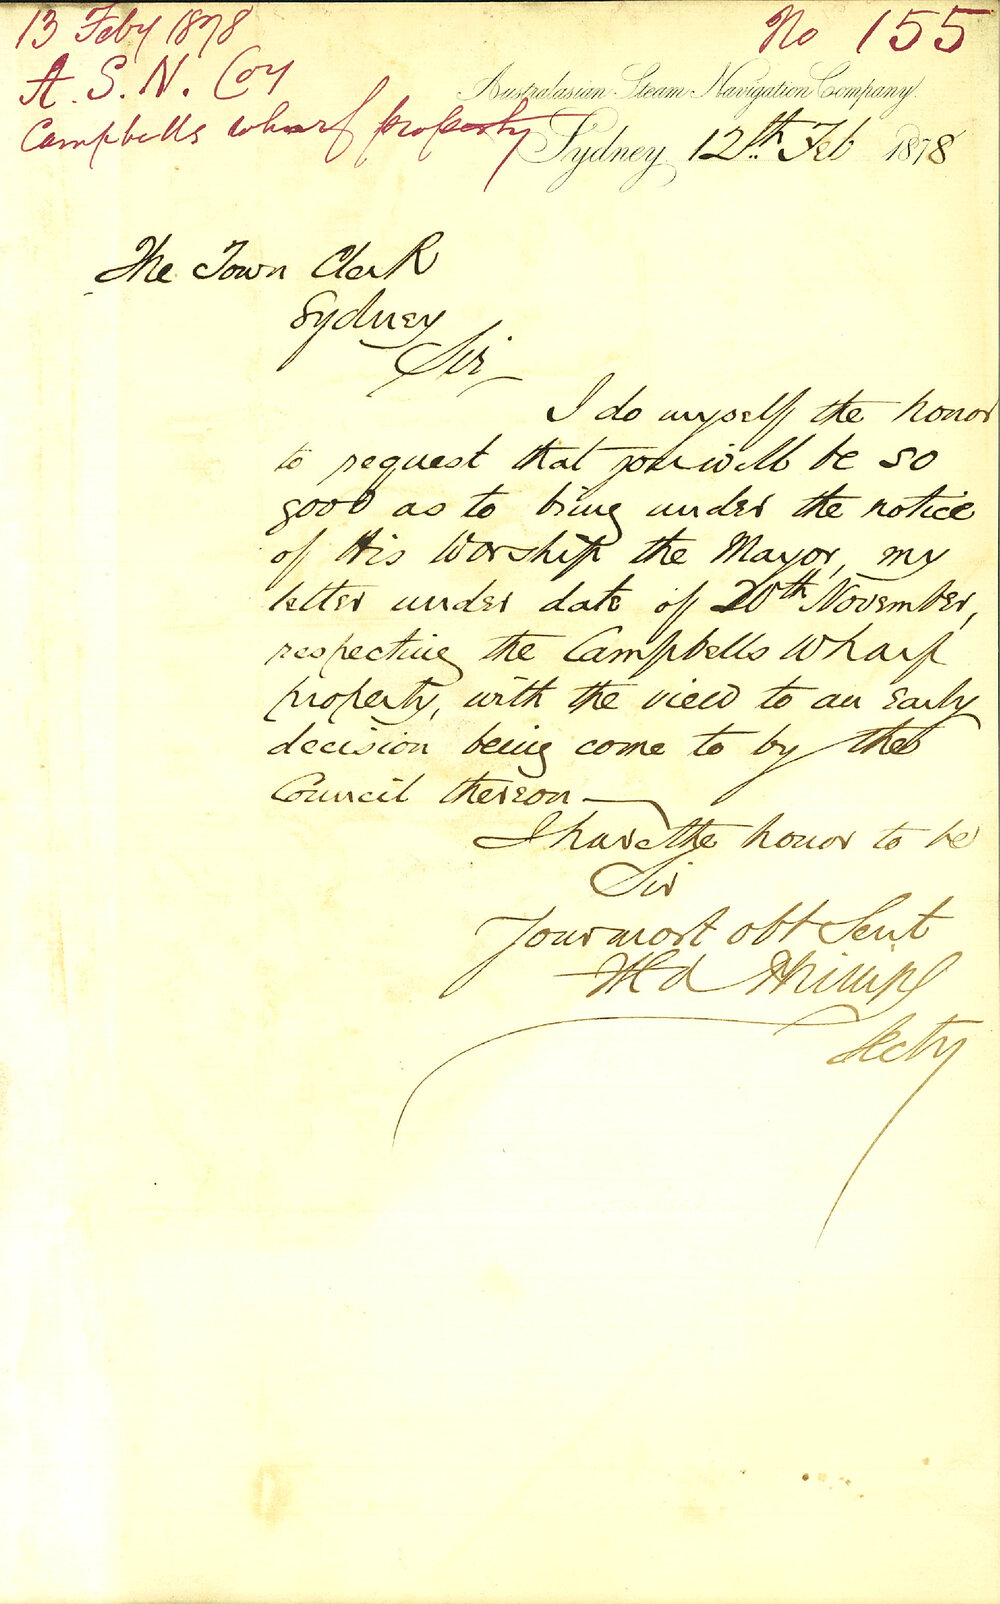 13 Feby 1878
No 155
A. S. N. Coy
Campbells wharf property
Australasian Steam Navigation Company.
Sydney 12th Feb 1878
The Town Clerk
Sydney
Sir
I do myself the honor
to request that you will be so
good as to bring under the notice
of His Worship the Mayor, my
letter under date of 20th November,
respecting the Campbells Wharf
property, with the view to an early
decision being come to by the
Council thereon—
I have the honor to be
Sir
Your most obt Servt
Fred Phillips
Secty